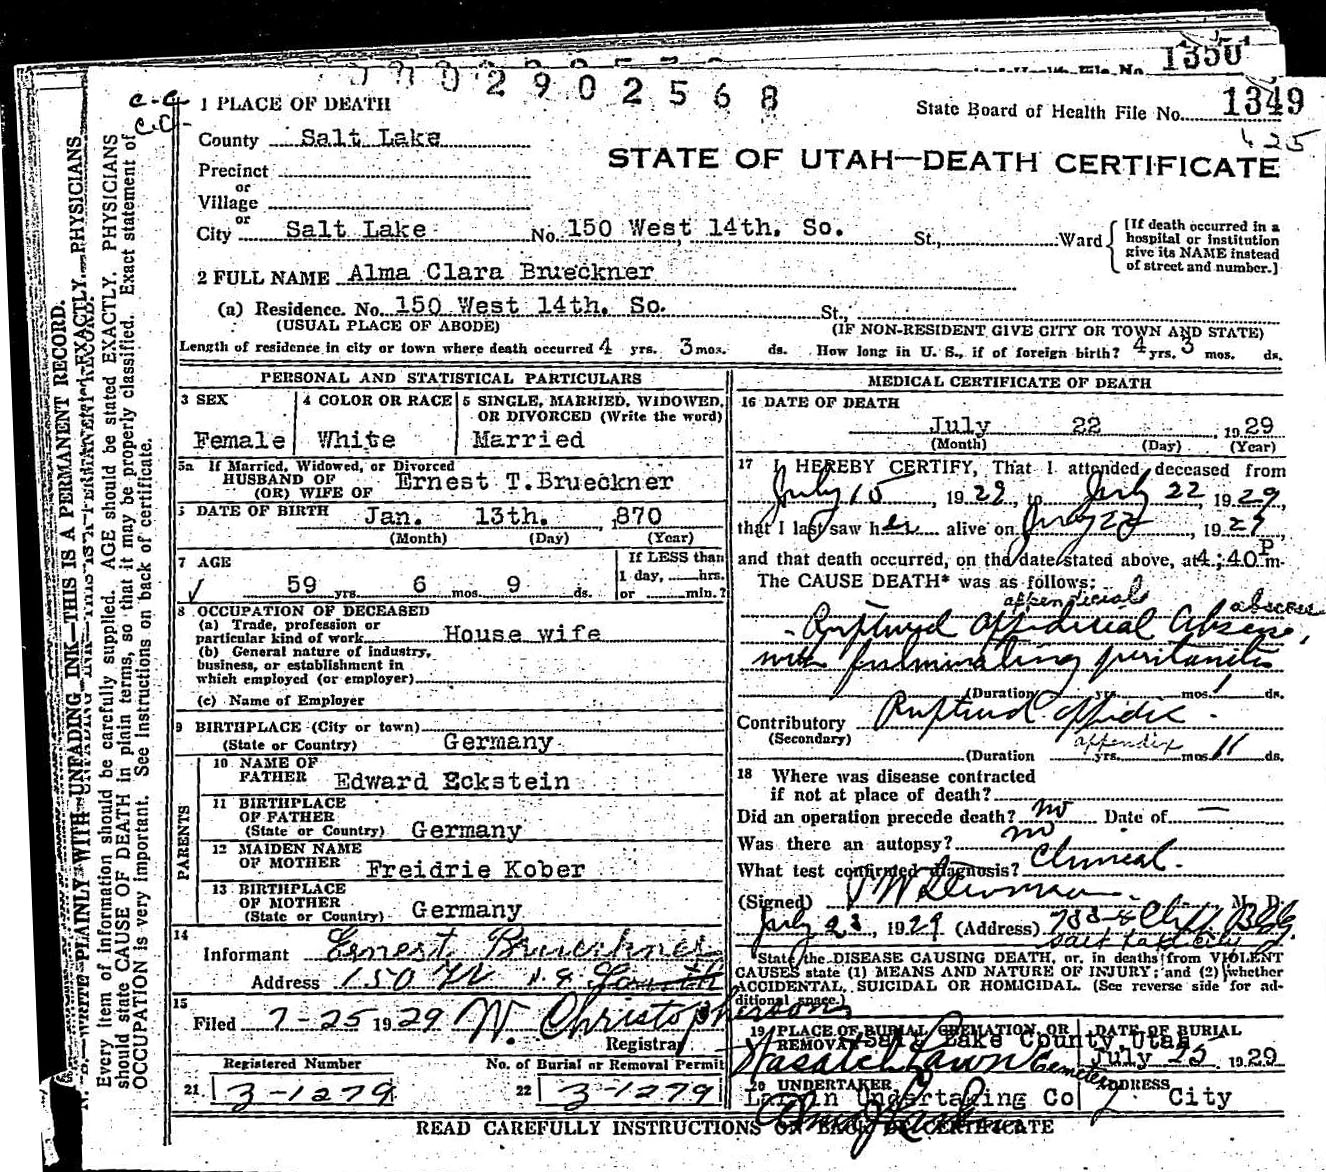 1350
0002902568
State Board of Health File No. 1349
425
C.C.
C.C.
1 PLACE OF DEATH
County Salt Lake
STATE OF UTAH—DEATH CERTIFICATE
Precinct
or
Village
or
City Salt Lake No. 150 West 14th. So. St., Ward
[If death occurred in a hospital or institution give its NAME instead of street and number.]
2 FULL NAME Alma Clara Brueckner
(a) Residence. No. 150 West 14th. So. St.,
(USUAL PLACE OF ABODE) (IF NON-RESIDENT GIVE CITY OR TOWN AND STATE)
Length of residence in city or town where death occurred 4 yrs. 3 mos. ds. How long in U. S., if of foreign birth? 4 yrs. 3 mos. ds.
PERSONAL AND STATISTICAL PARTICULARS
3 SEX
Female
4 COLOR OR RACE
White
5 SINGLE, MARRIED, WIDOWED, OR DIVORCED (Write the word)
Married
5a If Married, Widowed, or Divorced
HUSBAND OF
(OR) WIFE OF Ernest T. Brueckner
DATE OF BIRTH Jan. 13th. ,870
(Month) (Day) (Year)
7 AGE
59 yrs. 6 mos. 9 ds.
If LESS than
1 day, hrs.
or min.?
8 OCCUPATION OF DECEASED
(a) Trade, profession or
particular kind of work House wife
(b) General nature of industry,
business, or establishment in
which employed (or employer)
(c) Name of Employer
9 BIRTHPLACE (City or town)
(State or Country) Germany
PARENTS
10 NAME OF
FATHER Edward Eckstein
11 BIRTHPLACE
OF FATHER
(State or Country) Germany
12 MAIDEN NAME
OF MOTHER Freidrie Kober
13 BIRTHPLACE
OF MOTHER
(State or Country) Germany
14
Informant Ernest Brueckner
Address 150 W 14 South
15
Filed 7-25 1929 W. Christopherson
Registrar
Registered Number
21 3-1279
No. of Burial or Removal Permit
22 3-1279
MEDICAL CERTIFICATE OF DEATH
16 DATE OF DEATH
July 22 1929
(Month) (Day) (Year)
17 I HEREBY CERTIFY, That I attended deceased from
July 15, 1929, to July 22, 1929,
that I last saw her alive on July 22, 1929,
and that death occurred, on the date stated above, at 4:40 P m.
The CAUSE DEATH* was as follows:
appendicial abscess
Ruptured Appendicial Abscess,
with fulminating peritonitis
(Duration yrs. mos. 1 ds.
Contributory Ruptured Appendix.
(Secondary)
appendix
(Duration yrs. mos. 11 ds.
18 Where was disease contracted
if not at place of death?
Did an operation precede death? no Date of —
Was there an autopsy? no
What test confirmed diagnosis? Clinical.
(Signed) M. D.
July 23, 1929 (Address) Cliff Bldg.
Salt Lake City
State the DISEASE CAUSING DEATH, or, in deaths from VIOLENT
CAUSES state (1) MEANS AND NATURE OF INJURY; and (2) whether
ACCIDENTAL, SUICIDAL OR HOMICIDAL. (See reverse side for ad-
ditional space.)
19 PLACE OF BURIAL CREMATION OR
REMOVAL Salt Lake County, Utah
Wasatch Lawn Cemetery
DATE OF BURIAL
July 25 1929
20 UNDERTAKER
Larkin Undertaking Co
ADDRESS
City
READ CAREFULLY INSTRUCTIONS ON BACK OF CERTIFICATE
N. B.—WRITE PLAINLY WITH UNFADING INK—THIS IS A PERMANENT RECORD.
Every item of information should be carefully supplied. AGE should be stated EXACTLY. PHYSICIANS
should state CAUSE OF DEATH in plain terms, so that it may be properly classified. Exact statement of
OCCUPATION is very important. See instructions on back of certificate.